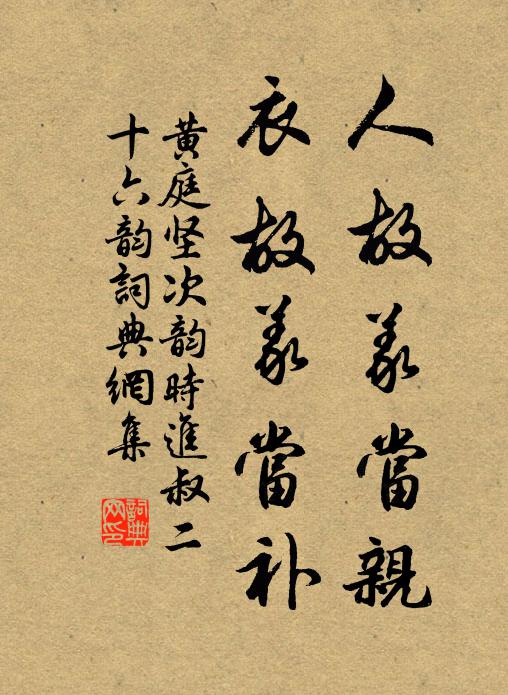 人故義當親
衣故義當补
黄庭坚次韵時進叔二
十六韵詞典網集
詞典网印